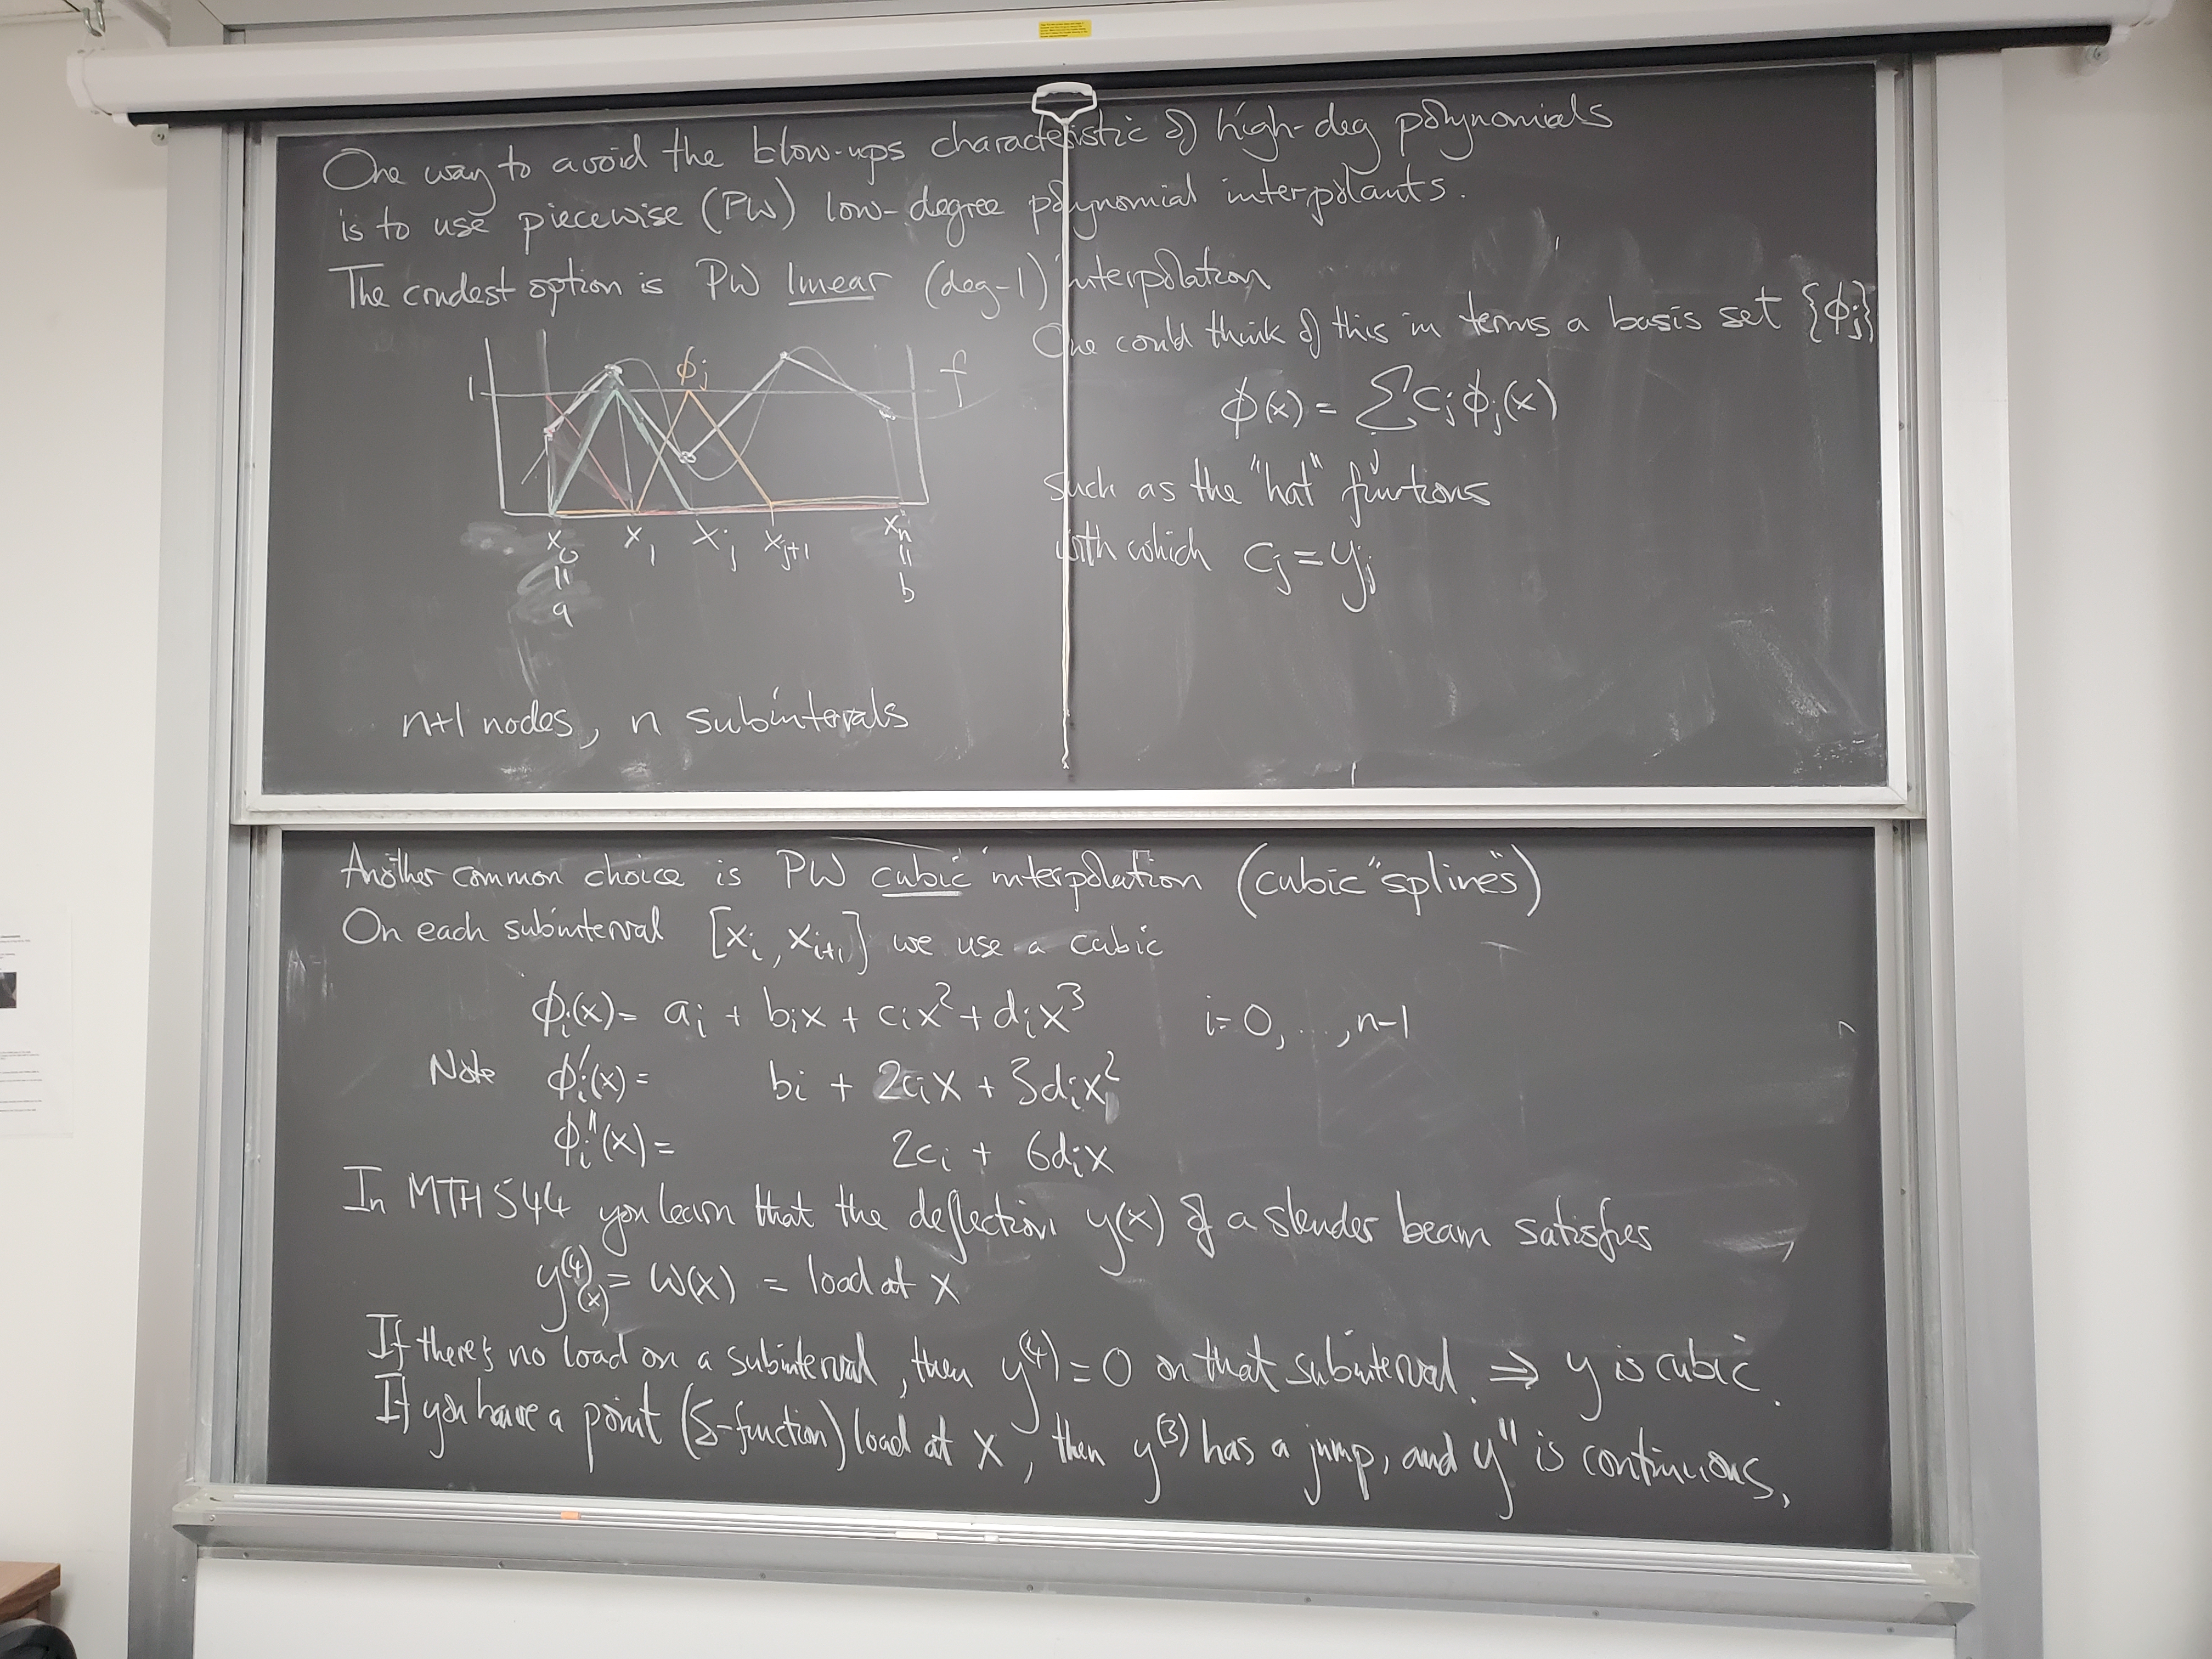 One way to avoid the blow-ups characteristic of high-deg polynomials
is to use piecewise (PW) low-degree polynomial interpolants.
The crudest option is PW linear (deg-1) interpolation
One could think of this in terms a basis set {ϕj}
ϕ(x) = Σ cj ϕj(x)
j
such as the "hat" functions
with which cj = yj
1
ϕj
f
x0 x1 xj xj+1 xn
11 11
a b
n+1 nodes, n subintervals
Another common choice is PW cubic interpolation (cubic "splines")
On each subinterval [xi, xi+1] we use a cubic
ϕi(x) = ai + bix + cix² + dix³ i=0, ..., n-1
Note ϕi'(x) = bi + 2cix + 3dix²
ϕi''(x) = 2ci + 6dix
In MTH 544 you learn that the deflection y(x) of a slender beam satisfies
y⁽⁴⁾(x) = w(x) = load at x
If there's no load on a subinterval, then y⁽⁴⁾ = 0 on that subinterval. ⇒ y is cubic.
If you have a point (δ-function) load at x, then y⁽³⁾ has a jump, and y'' is continuous,